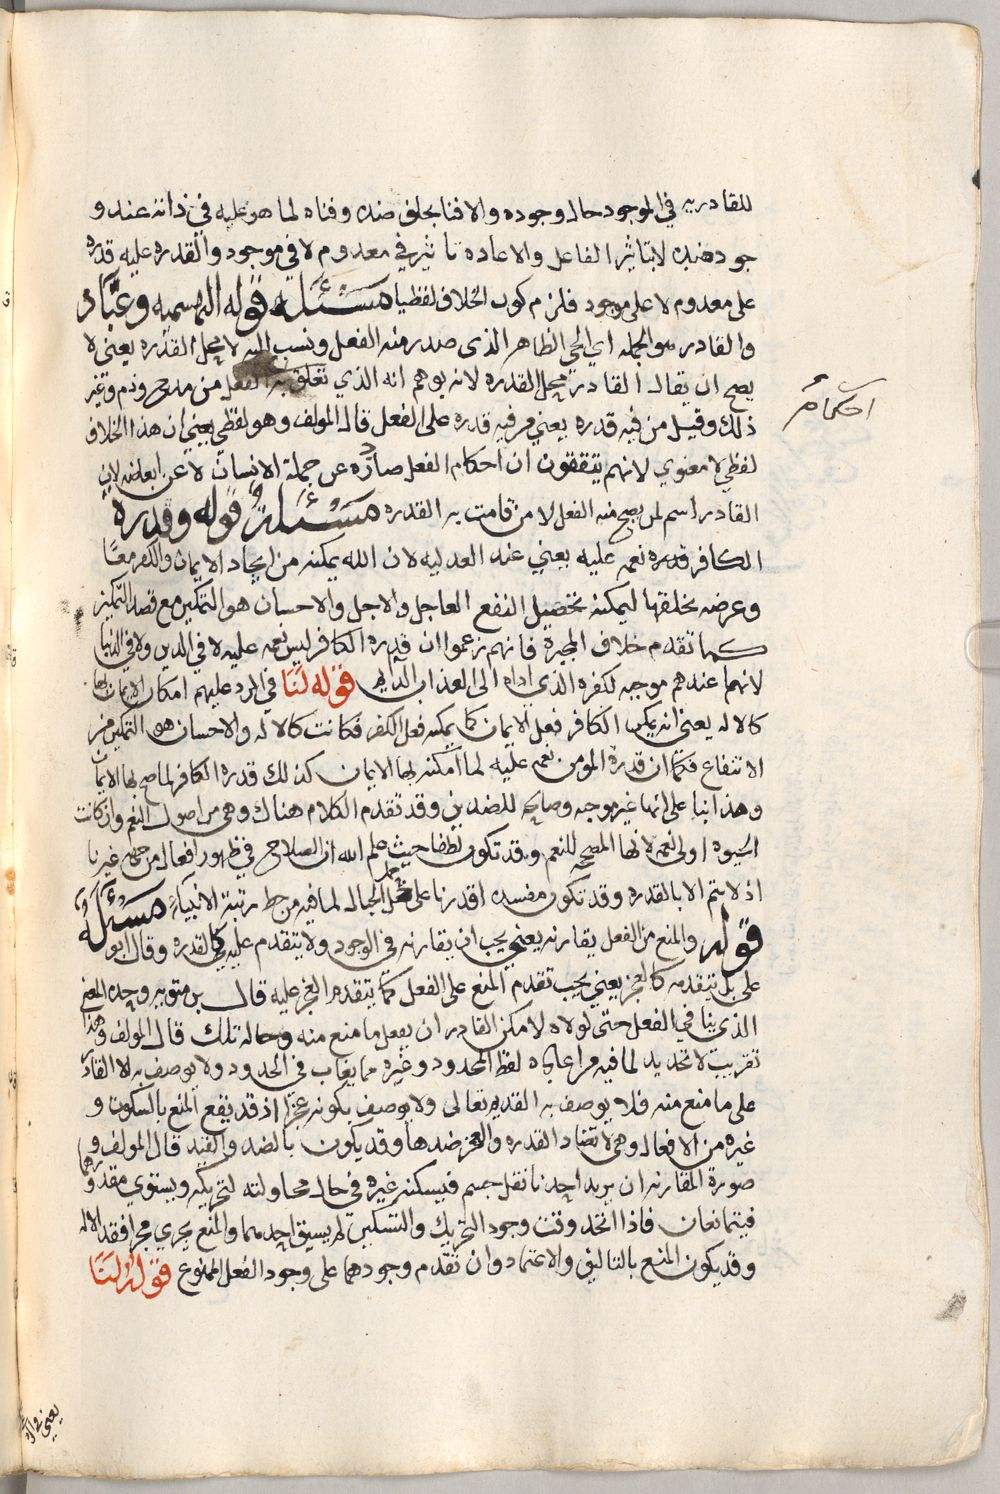 للقادريه في الموجود حال وجوده والافنا بخلق ضده وفناه لما هو عليه في ذاته عند و
جود ضده لا بتاثير الفاعل والاعاده تاثير في معدوم لا في موجود والقدره عليه قدره
على معدوم لا على موجود فلزم كون الخلاف لفظيا مسئله قوله البهشميه وعباد
والقادر هو الجمله اي الحي الظاهر الذى صدر منه الفعل ونسب اليه لا محل القدره يعني لا
يصح ان يقال القادر محل القدره لانه يوهم انه الذي تعلق به الفعل من مدح وذم وغير
احكام
ذلك وقيل من فيه قدره يعني من فيه قدره على الفعل قال المولف وهو لفظي يعني ان هذا الخلاف
لفظي لا معنوي لانهم يتفقون ان احكام الفعل صادره عن جملة الانسان لا عن ابعاضه لان
القادر اسم لمن يصح منه الفعل لا من قامت به القدره مسئله قوله وقدرة
الكافر قدره نعمه عليه يعني عند العدليه لان الله يمكنه من ايجاد الايمان والكفر معًا
وعرضه بخلقها ليمكنه تحصيل النفع العاجل والاجل والاحسان هو التمكين مع قصد التمكين
كما تقدم خلاف المجبرة فانهم زعموا ان قدرة الكافر ليس نعمه عليه لا في الدين ولا في الدنيا
لانها عندهم موجبه لكفره الذي اداه الى العذاب الدايم قوله لنا في الرد عليهم امكان الايمان بها
كالاله يعني انه يمكن الكافر فعل الايمان كما يمكنه فعل الكفر فكانت كالاله والاحسان هو التمكين من
الانتفاع فكما ان قدرة المومن نعمه عليه لما امكنه بها الايمان كذلك قدرة الكافر لما صح بها الايمان
وهذا بنا على انها غير موجبه وصالحه للضدين وقد تقدم الكلام هناك وهي من اصول النعم وان كانت
الحيوة اولى نعمه لانها المصححه للنعم وقد تكون لطفا حيث علم الله ان الصلاح في ظهور افعال من جهة غيرنا
اذ لا يتم الا بالقدره وقد تكون مفسده اقدرنا على حمل الجبال لما فيه من حط رتبة الانبياء مسئله
قوله والمنع من الفعل يقارنه يعني يجب ان يقارنه في الوجود ولا يتقدم عليه كالقدره وقال ابو
على بل يتقدمه كالعجز يعني يجب تقدم المنع على الفعل كما يتقدم العجز عليه قال بن متويه وحده المعنى
الذي ينافي الفعل حتى لولاه لامكن القادر ان يفعل ما منع منه وحاله تلك قال المولف وهذا
تقريب لا تحديد لما فيه مراعاه لفظ المحدود وغيره مما يعاب في الحدود ولا يوصف به الا القادر
على ما منع منه فلا يوصف به القديم تعالى ولا يوصف بكونه عجزا اذ قد يقع المنع بالسكون و
غيره من الافعال وهي لا تضاد القدره والعجز ضدها وقد يكون بالضد والقيد قال المولف و
صورة المقارنه ان يريد احدنا نقل جسم فيسكنه غيره في حال محاولته لتحريكه ويستوي مقدورهما
فيتمانعان فاذا اتحد وقت وجود التحريك والتسكين لم يسبق احدهما والمنع يجري مجرا فقد الاله
وقد يكون المنع بالتاليف والاعتماد وان تقدم وجودهما على وجود الفعل الممنوع قوله لنا